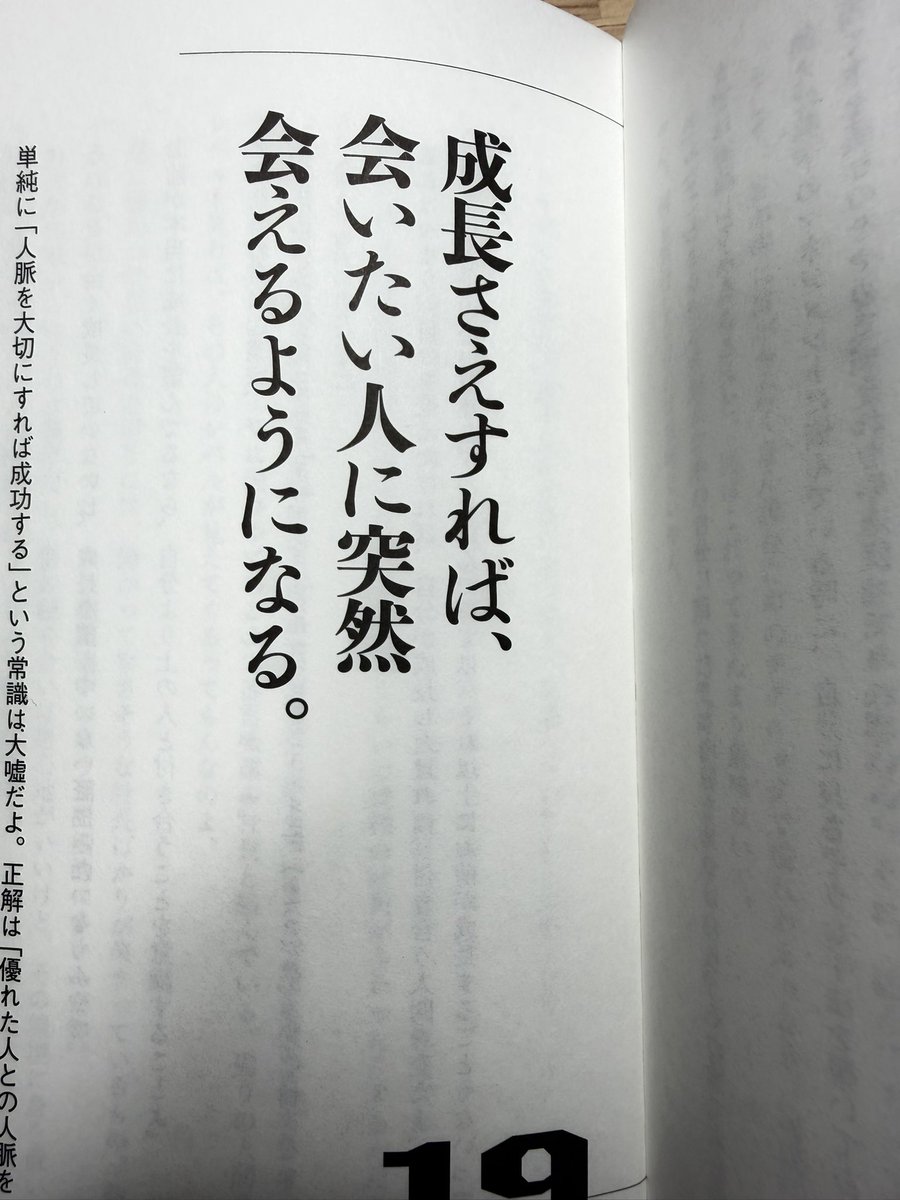 成長さえすれば、
会いたい人に突然
会えるようになる。
単純に「人脈を大切にすれば成功する」という常識は大嘘だよ。正解は「優れた人との人脈を
19